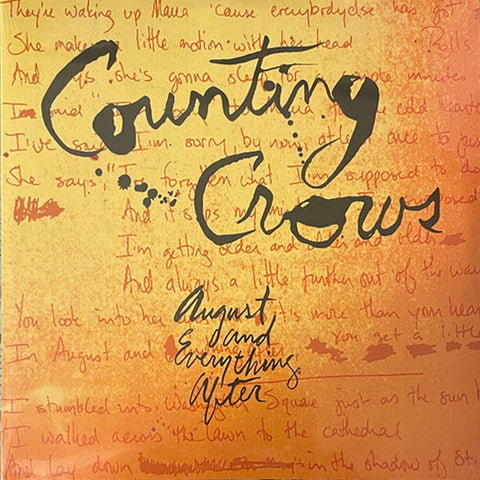 They're waking up Maria 'cause everybodyelse has got
She makes a little motion with her head
Rolls
And says she's gonna sleep for a couple minutes
I'm
said
to
Maria
for
the cold
I've said I'm sorry by now, at least once to just
She says, "I've forgotten what I'm supposed to do
And it slips my mind
Counting
Crows
I'm getting older and older and older
And always a little further out of the way
You look into her
it's more than you hear
August
& and
Everything
After
In August and everything after
You get a little
I stumbled into Washington Square just as the sun
I walked across the lawn to the cathedral
And lay down
in the shadow of St.